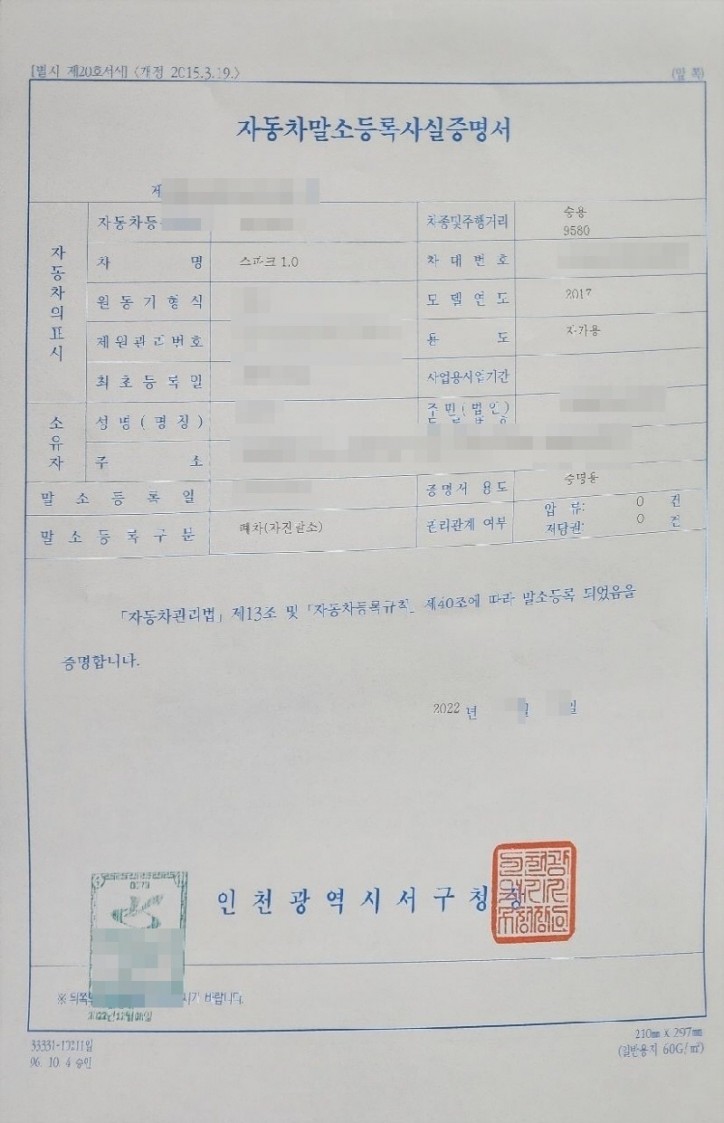 [별지 제20호서식] <개정 2015.3.19.>
(앞 쪽)
자동차말소등록사실증명서
제
자동차의 표시
자동차등
차종및주행거리
승용
9580
차 명
스파크 1.0
차 대 번 호
원 동 기 형 식
모 델 연 도
2017
제 원 관 리 번 호
용 도
자가용
최 초 등 록 일
사업용사업기간
소유자
성 명 ( 명 칭 )
주 민 ( 법 인 )
주 소
말 소 등 록 일
증명서 용도
증명용
말 소 등 록 구 분
폐차(자진말소)
권리관계 여부
압 류: 0 건
저당권: 0 건
「자동차관리법」 제13조 및 「자동차등록규칙」 제40조에 따라 말소등록 되었음을
증명합니다.
2022 년 월 일
인 천 광 역 시 서 구 청 장
※ 뒤쪽 시기 바랍니다.
210㎜ X 297㎜
96. 10. 4 승인
(일반용지 60G/㎡)